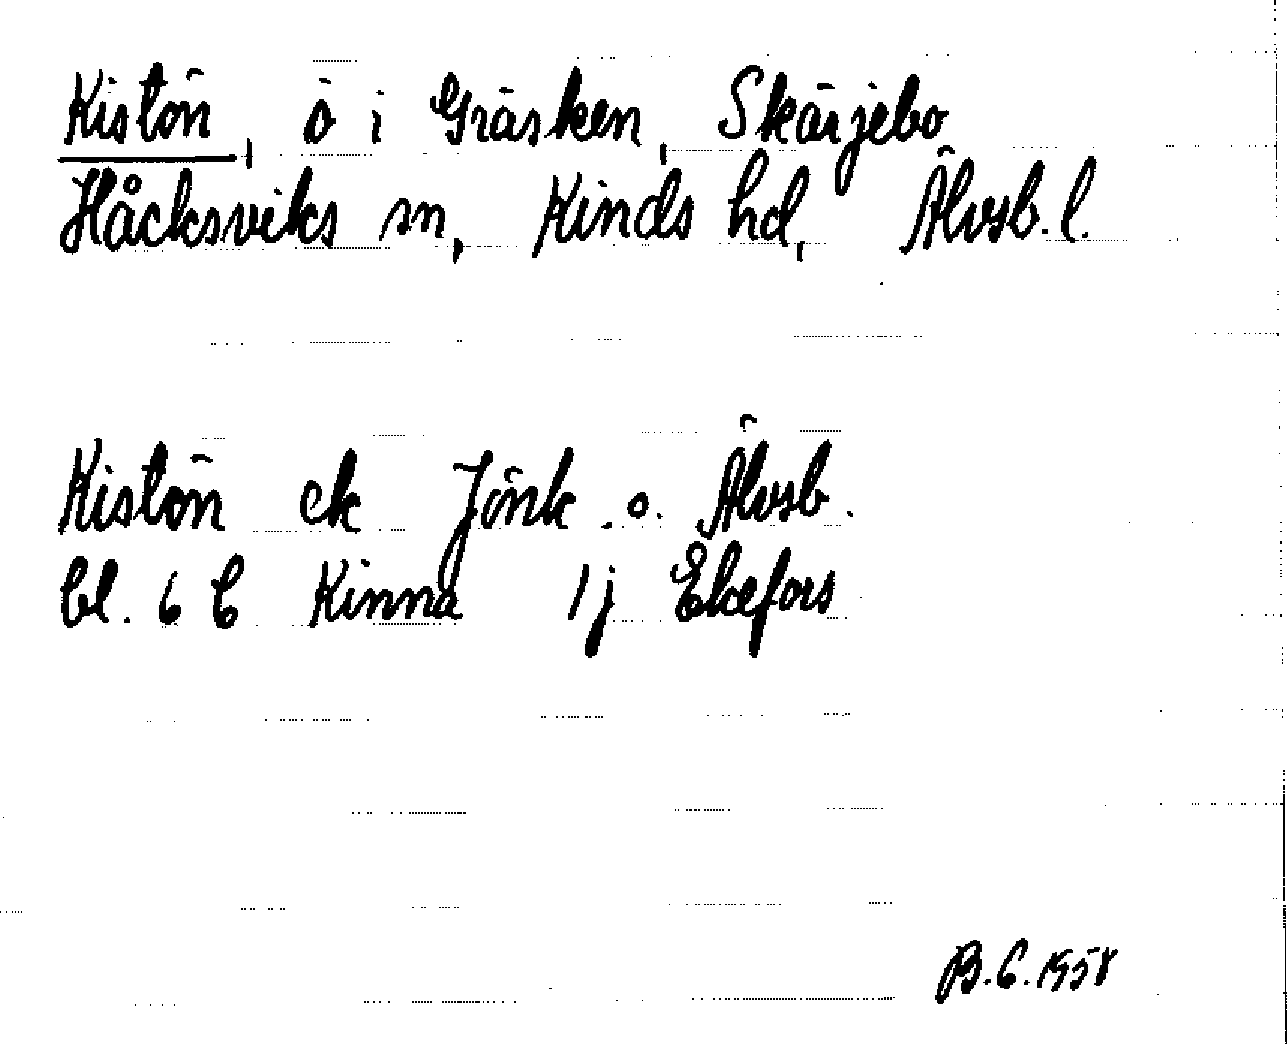 Kistön, ö i Gräsken, Skärjebo
Håcksviks sn, Kinds hd, Älvsb. l.
Kistön ek Jönk. o. Älvsb.
bl. 6 C Kinna 1j Ekefors
B.C. 1958